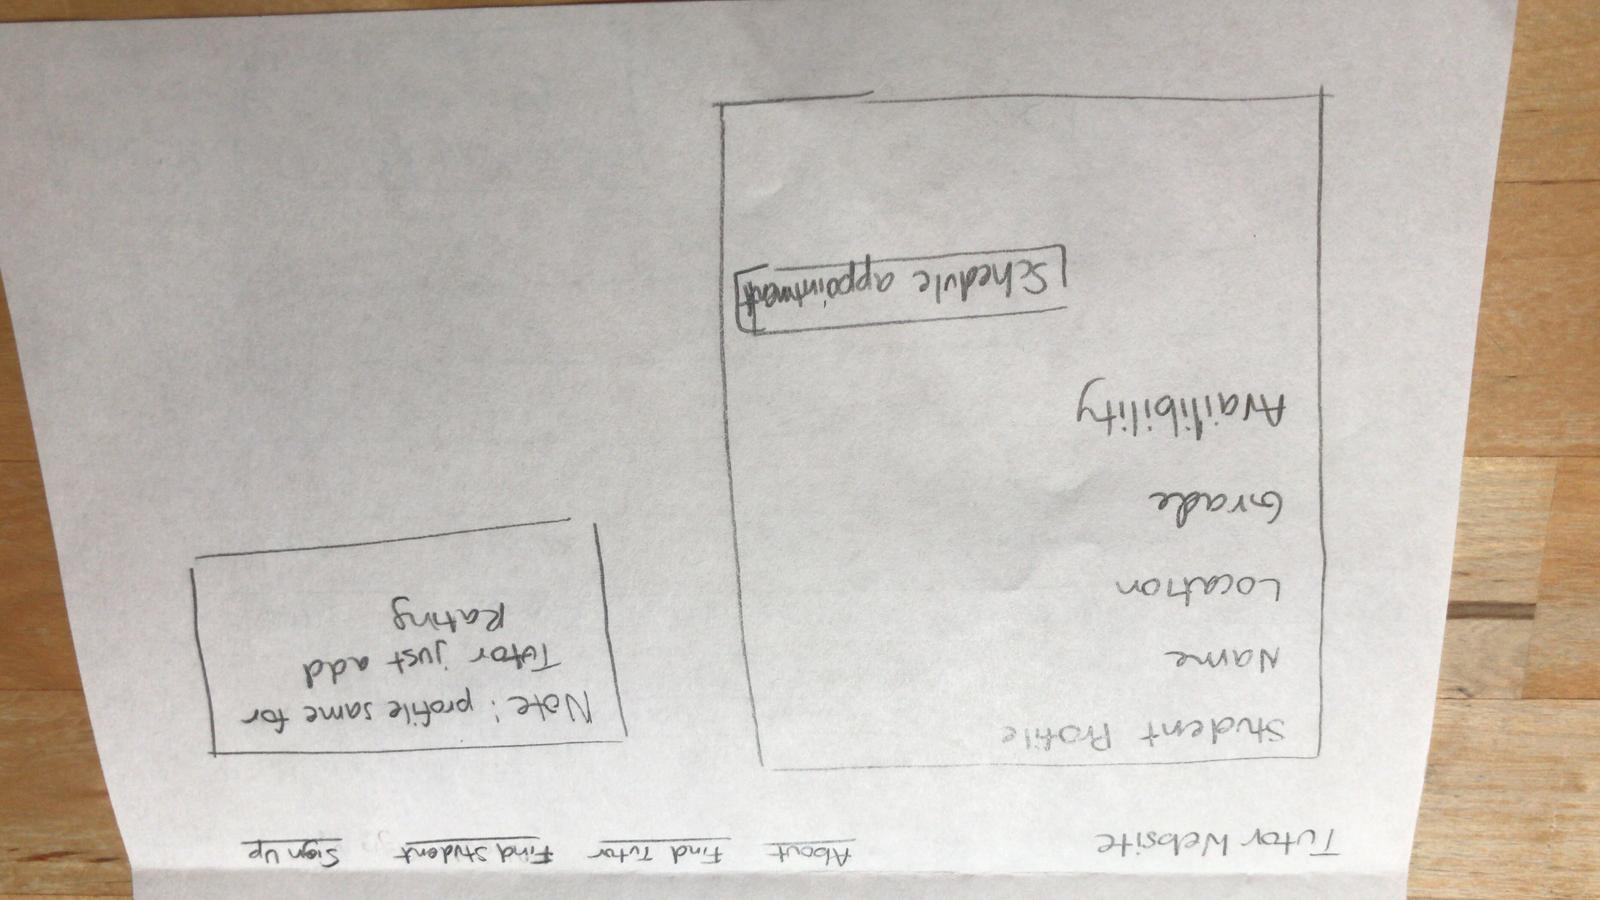 Tutor Website
About Find Tutor Find Student Sign Up
Student Profile
Name
Location
Grade
Availibility
Schedule appointment
Note: profile same for
Tutor just add
Rating